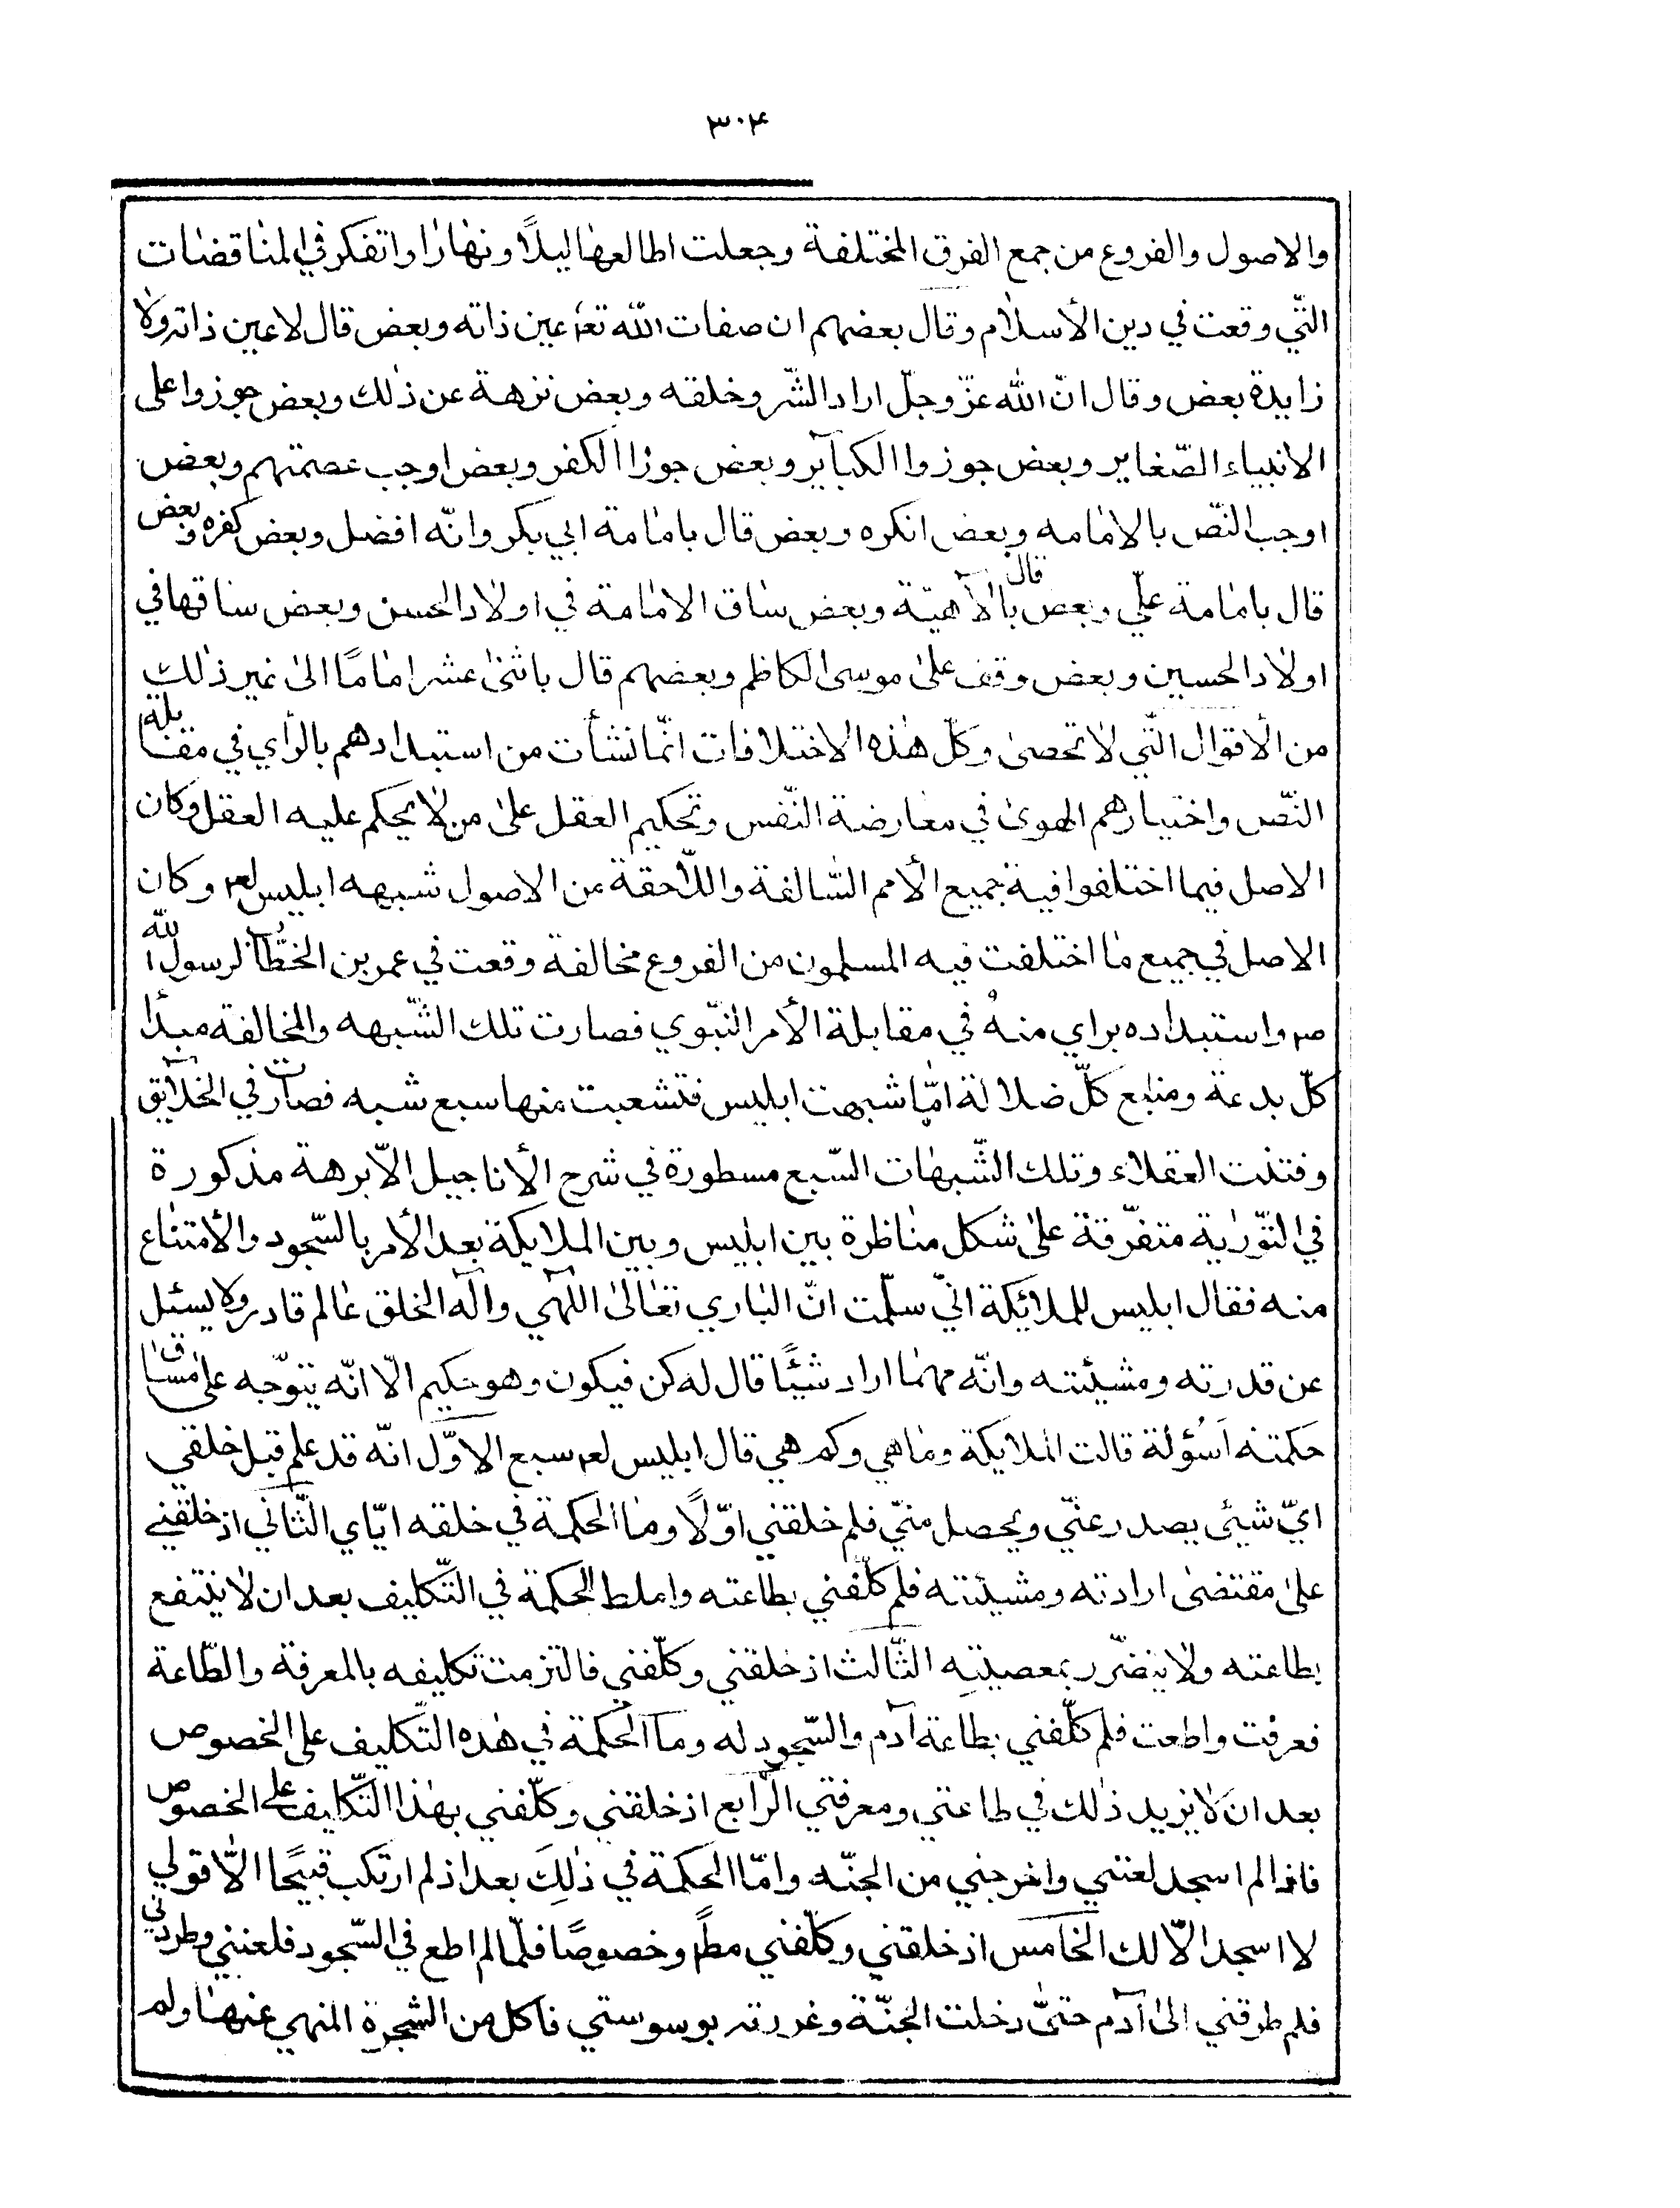 ٣٠۴
والاصول والفروع من جمع الفرق المختلفة وجعلت اطالعها ليلًا ونهارا واتفكر في المناقضات
التّي وقعت في دين الأسلام وقال بعضهم ان صفات اللّه تعم عين ذاته وبعض قال لا عين ذاته ولا
زايدة بعض وقال انّ اللّه عزّ وجلّ اراد الشّر وخلقه وبعض نزهة عن ذلك وبعض جوزوا على
الانبياء الصّغاير وبعض جوزوا الكبآير وبعض جوزا الكفر وبعض اوجب عصمتهم وبعض
اوجب النّص بالامامه وبعض انكره وبعض قال بامامة ابي بكر وانّه افضل وبعض كفره وبعض
قال بامامة علّي وبعض قال بالآهيّة وبعض ساق الامامة في اولاد الحسن وبعض ساقها في
اولاد الحسين وبعض وقف على موسى الكاظم وبعضهم قال باثنى عشر امامًا الى غير ذلك
من الأقوال التّي لا تحصى وكلّ هذه الاختلافات انّما نشأت من استبدادهم بالرّأي في مقابلة
النّص واختيارهم الهوى في معارضة النّفس وتحكيم العقل على من لا يحكم عليه العقل وكان
الاصل فيما اختلفوا فية جميع الأمم السّالفة واللّاحقة من الاصول شبهه ابليس لعم وكان
الاصل في جميع ما اختلفت فيه المسلمون من الفروع مخالفة وقعت في عمر بن الخطّاب لرسول اللّه
صم واستبداده براي منهُ في مقابلة الأمر النّبوي فصارت تلك الشّبهه والمخالفة مبدأ
كلّ بدعة ومنابع كلّ ضلالة امّا شبهت ابليس فتشعبت منها سبع شبه فصارت في الخلآيق
وفتنت العقلاء وتلك الشّبهات السّبع مسطورة في شرح الأناجيل الاّبرهة مذكورة
في التوّراية متفرّقة على شكل مناظرة بين ابليس وبين الملايكة بعد الأمر بالسّجود والأمتناع
منه فقال ابليس للملائيكة انّي سلّمت انّ الباري تعالى اللهي وآله الخلق عالم قادر ولا يسئل
عن قدرته ومشيئته وانّه مهما اراد شئًا قال له كن فيكون وهو حكيم الّا انّه يتوّجه على مساق
حكمته اَسئولة قالت الملايكة وما هي وكم هي قال ابليس لعم سبع الاوّل انّه قد علم قبل خلقي
ايّ شيئ يصدر عنّي ويحصل منّي فلم خلقني اوّلًا وما الحكمة في خلقه ايّاي الثّاني اذ خلقني
على مقتضى ارادته ومشيئته فلم كلّفني بطاعته واملط الحكمة في التّكليف بعد ان لا ينتفع
بطاعته ولا يتضّرر بمعصيتِه الثّالث اذ خلقني وكلّفني فالتزمت تكليفه بالمعرفة والطّاعة
فعرفت واطعت فلم كلّفني بطاعة آدم والسّجود له وما الحكمة في هذه التّكليف على الخصوص
بعد ان لا يزيد ذلك في طاعتي ومعرفتي الرّابع اذ خلقني وكلّفني بهذا التّكليف على الخصوص
فاذا لم اسجد لعنني واخرجني من الجنّه وامّا الحكمة في ذلِكَ بعد اذ لم ارتكب قبيحًا الّا قولي
لا اسجد الّا لك الخامس اذ خلقني وكلّفني مطم وخصوصًا فلمّا لم اطع في السّجود فلعنني وطردني
فلم طرقني الى آدم حتىّ دخلت الجنّة وغررته بوسوستي فاكل من الشجرة المنهي عنها ولم